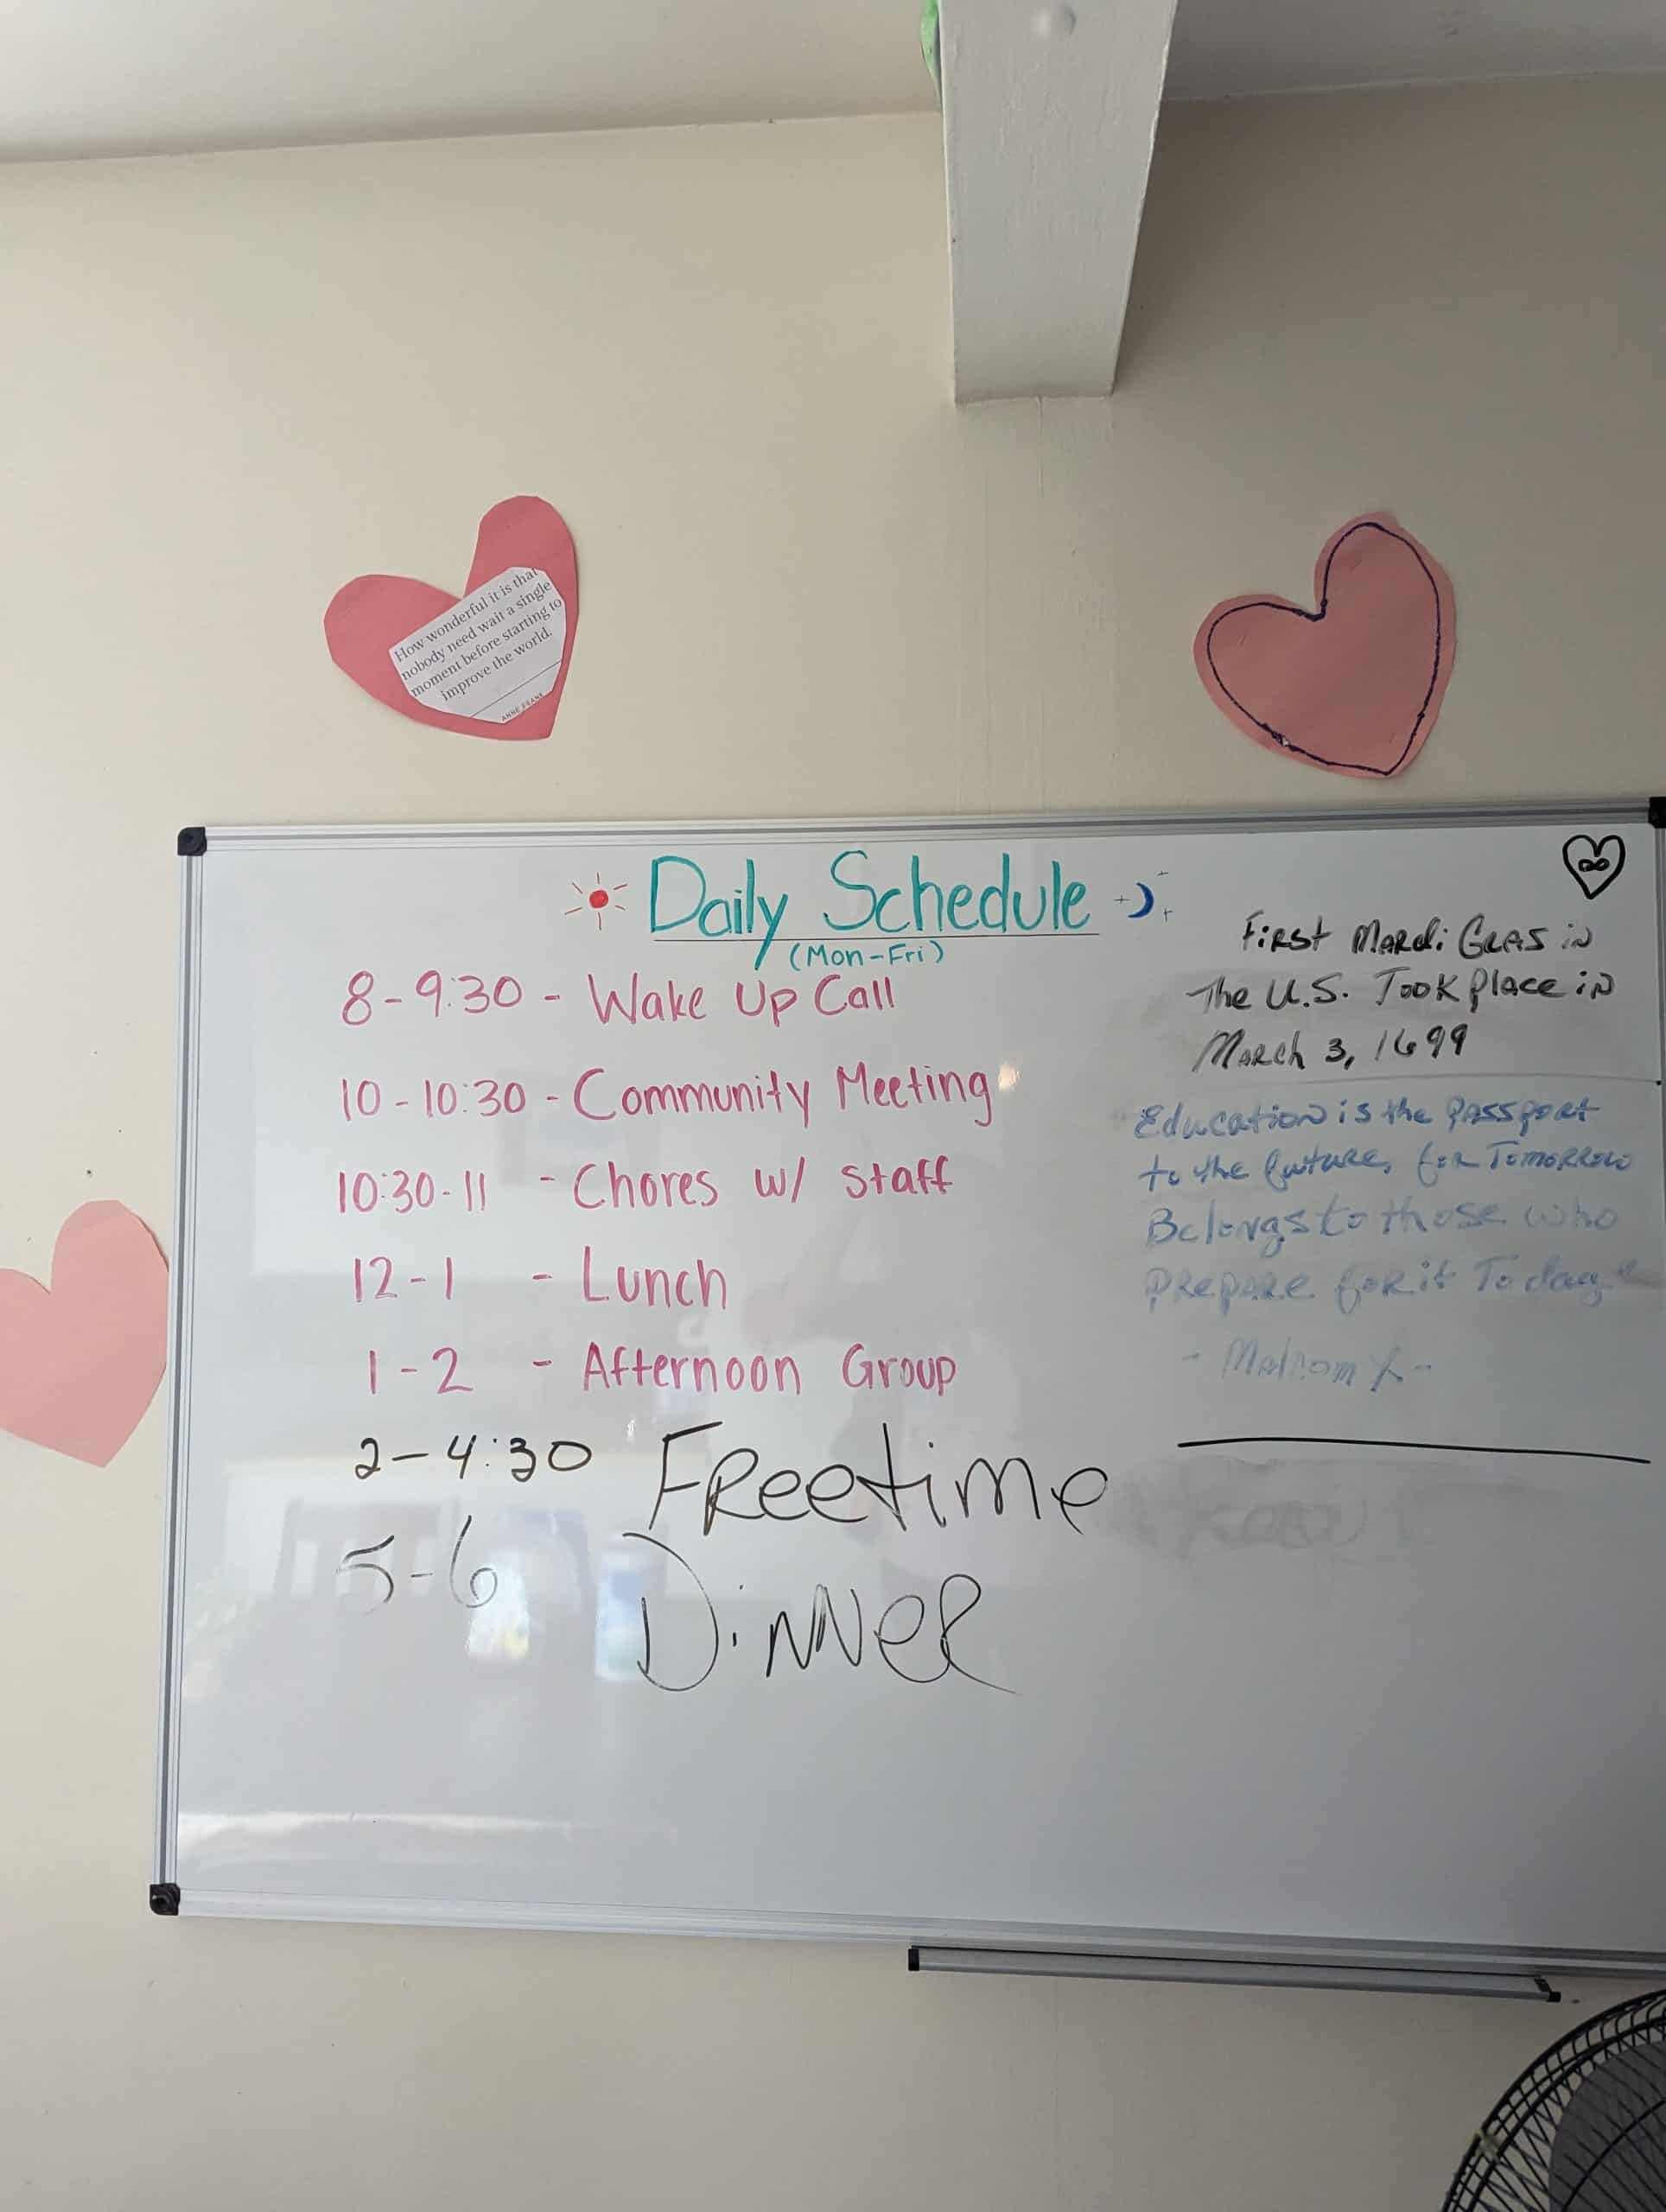 How wonderful it is that
nobody need wait a single
moment before starting to
improve the world.
ANNE FRANK
Daily Schedule
(Mon-Fri)
8-9:30 - Wake Up Call
10-10:30 - Community Meeting
10:30-11 - Chores w/ staff
12-1 - Lunch
1-2 - Afternoon Group
2-4:30 Freetime
5-6 Dinner
First Mardi Gras in
The U.S. Took place in
March 3, 1699
"Education is the Passport
to the future, for Tomorrow
Belongs to those who
prepare for it Today"
- Malcom X -